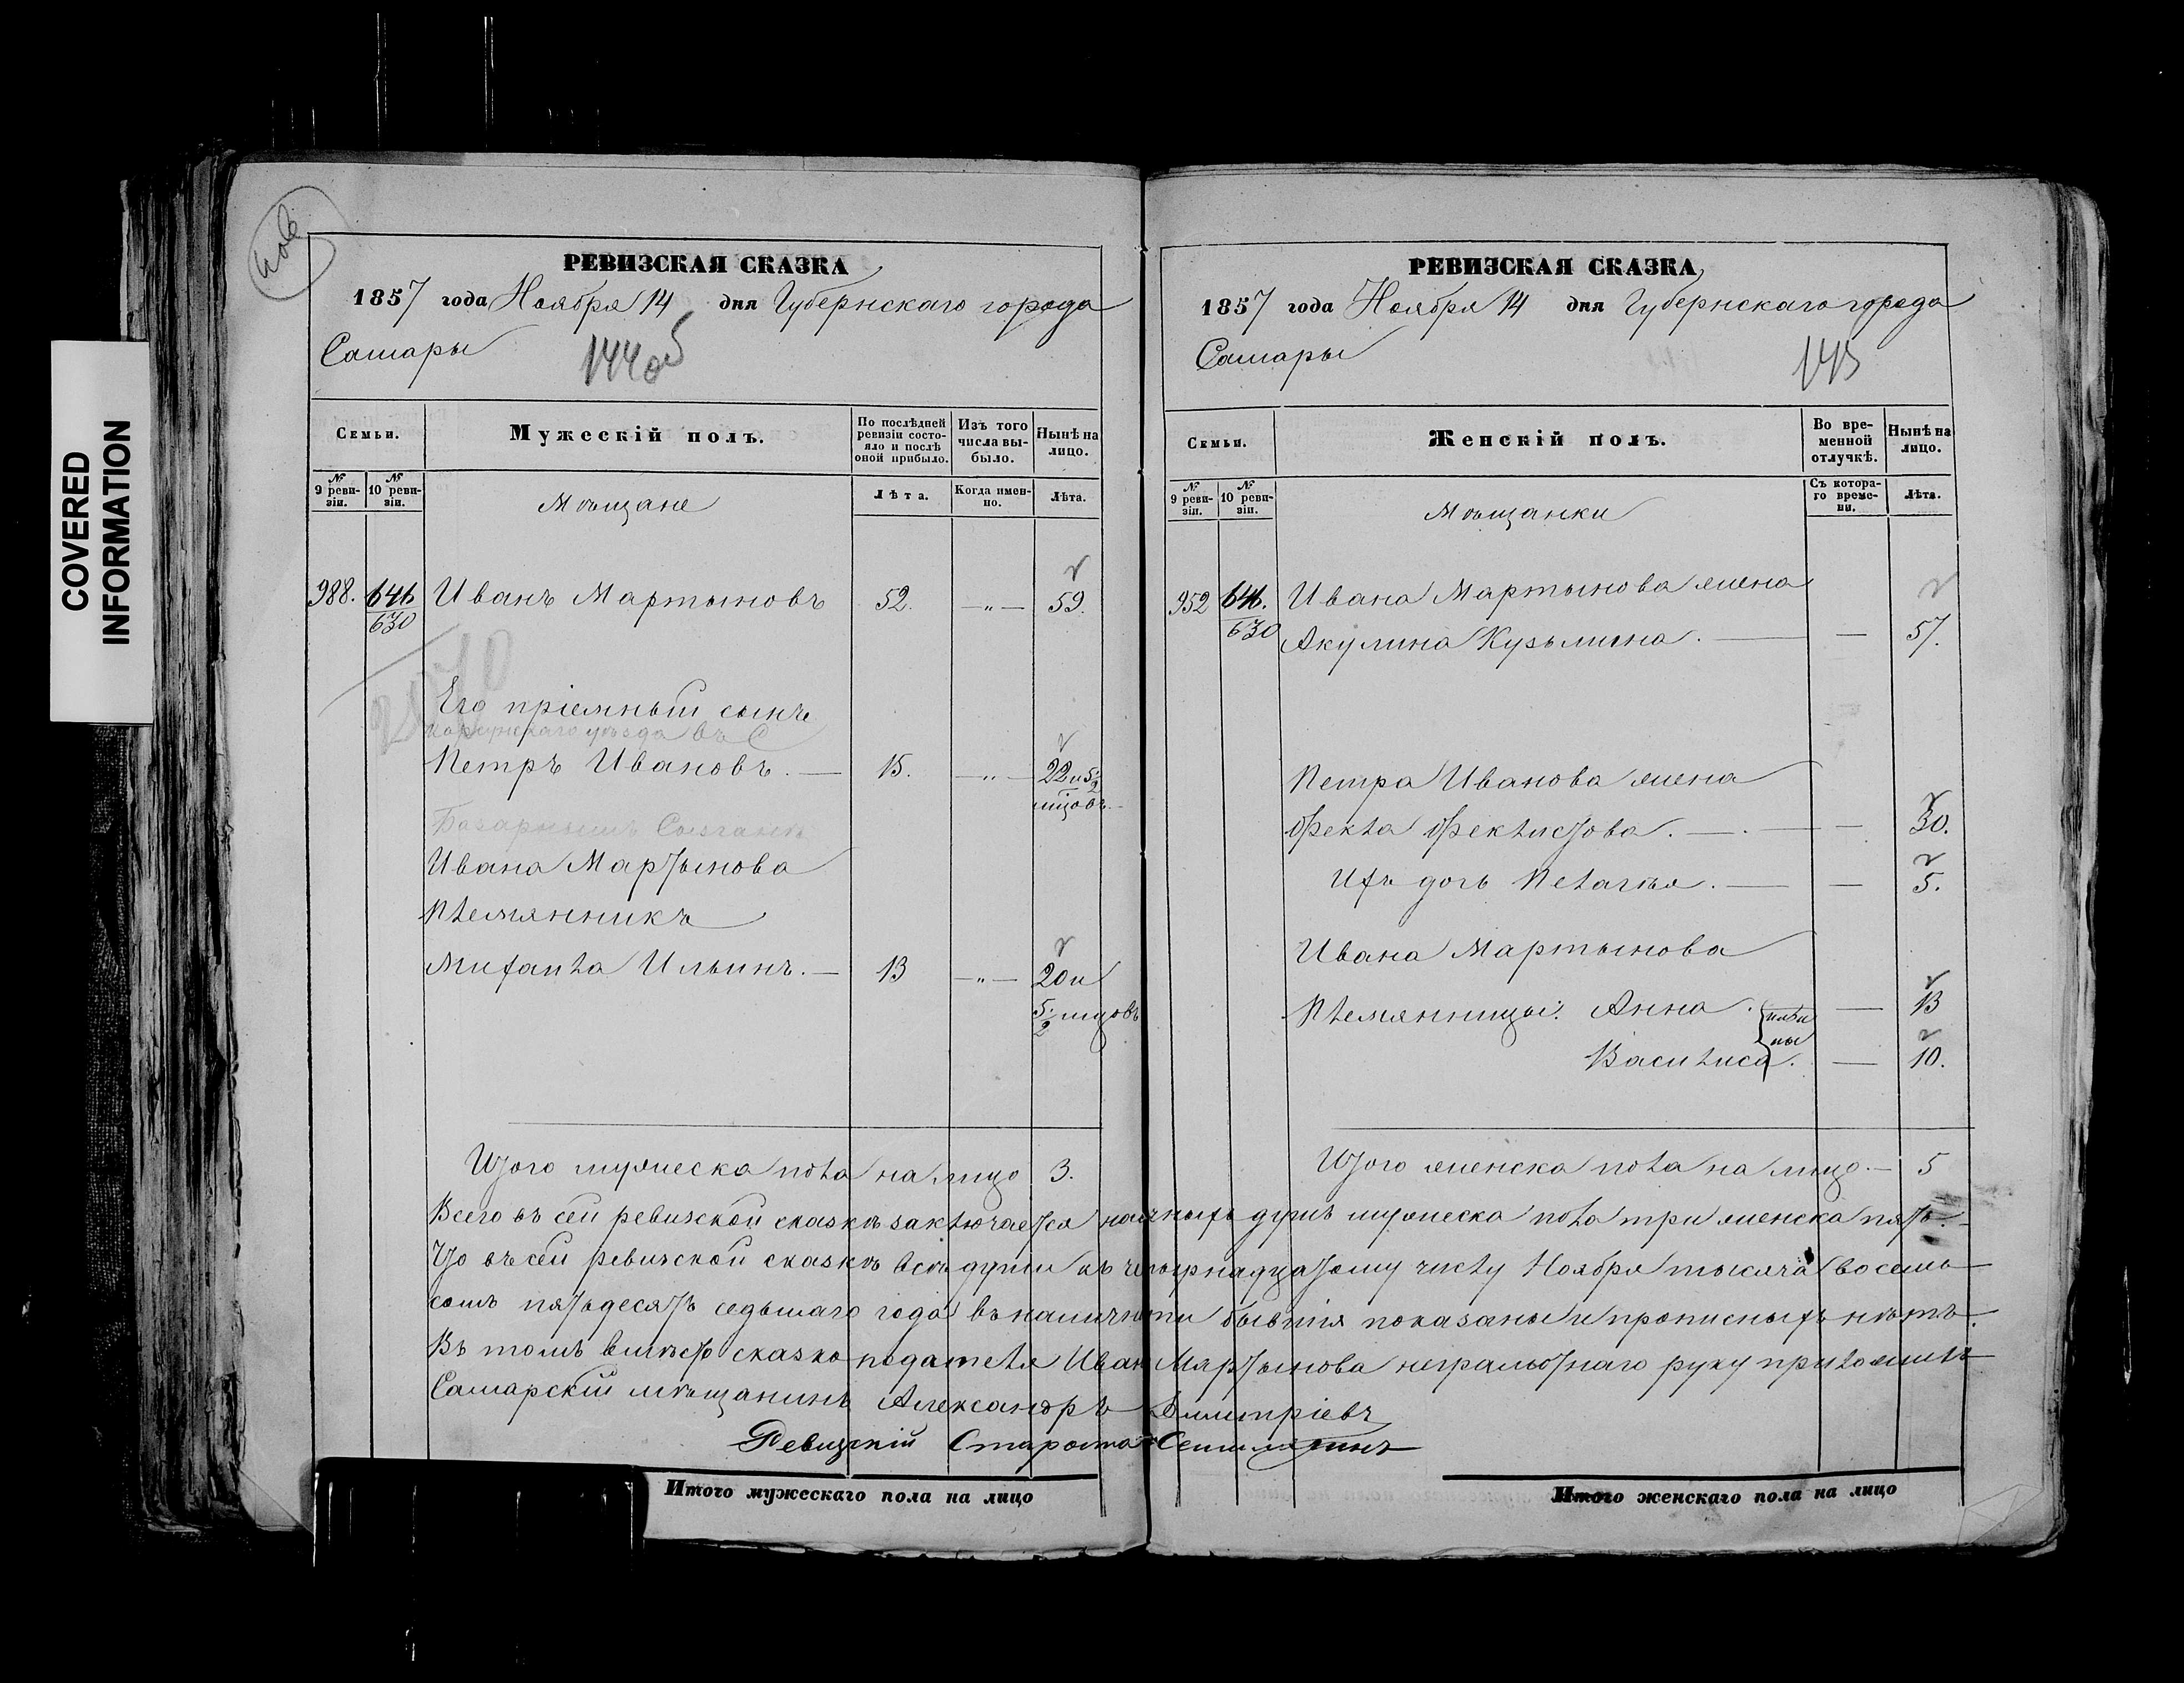 COVERED
INFORMATION
РЕВИЗСКАЯ СКАЗКА
1857 года Ноября 14 дня Губернскаго города
Самары
144 об
Семьи.
Мужескій полъ.
По послѣдней ревизіи состояло и послѣ оной прибыло.
Изъ того числа выбыло.
Нынѣ на лицо.
№ 9 ревизіи.
№ 10 ревизіи.
Мѣщане
Лѣта.
Когда именно.
Лѣта.
988. 646 Иванъ Мартыновъ 52. —„— 59.
630
Его пріемный сынъ
Петръ Ивановъ. — 15. —„— 22 и 5 1/2
мцовъ.
Ивана Мартынова
племянникъ
Михаила Ильинъ. — 13 —„— 20 и
5 1/2 мцовъ
Итого мужеска пола на лицо 3.
РЕВИЗСКАЯ СКАЗКА
1857 года Ноября 14 дня Губернскаго города
Самары
145
Семьи.
Женскій полъ.
Во временной отлучкѣ.
Нынѣ на лицо.
№ 9 ревизіи.
№ 10 ревизіи.
Мѣщанки
Съ котораго времени.
Лѣта.
952 646. Ивана Мартынова жена
630 Акулина Кузьмина. — — 57.
Петра Иванова жена
Фекла Феклистова. — — 30.
Ихъ дочь Пелагѣя. — — 5.
Ивана Мартынова
племянницы: Анна — 13
Ильины
Василиса. — 10.
Итого женска пола на лицо. — 5
Всего въ сей ревизской сказкѣ заключается наличныхъ душъ мужеска пола три женска пять. —
Что въ сей ревизской сказкѣ всѣ души къ четырнадцатому числу Ноября тысяча восемь
сотъ пятьдесятъ седьмаго года въ наличности бывшія показаны и прописныхъ нѣтъ.
Въ томъ вмѣсто сказко-подателя Иван Мартынова неграмотнаго руку приложилъ
Самарскій мѣщанинъ Александръ Димитріевъ
Ревизскій Староста
Итого мужескаго пола на лицо
Итого женскаго пола на лицо